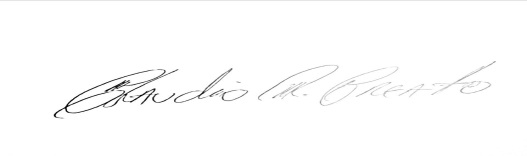 Claudio M. Breato